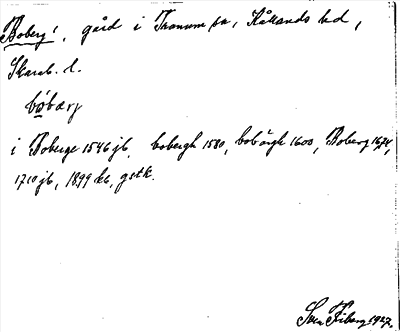 Boberg!, gård i Tranum sn, Kållands hd,
Skarab. l.
bóbærj
i Boberge 1546 jb, bobergh 1580, bobärgh 1600, Boberg 1624,
1710 jb, 1899 kb, gstk.
Sven Fiberg 1927.